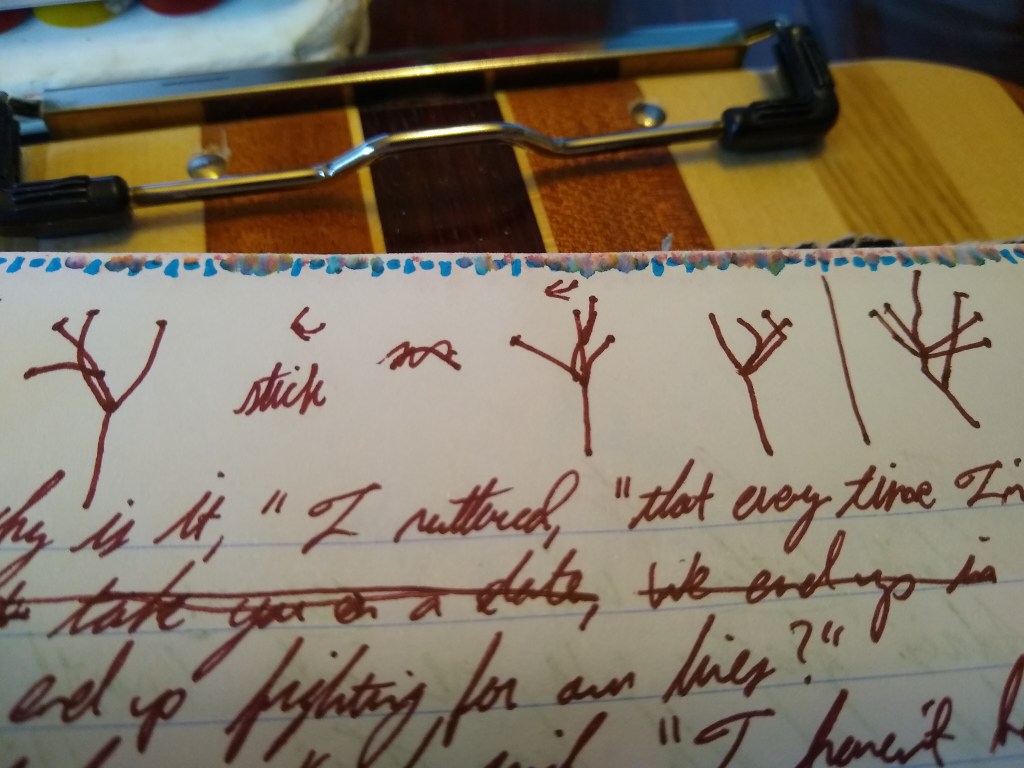 stick
is it," I muttered, "that every time I
take you on a date, we end up in
end up fighting for our lives?"
"I haven't